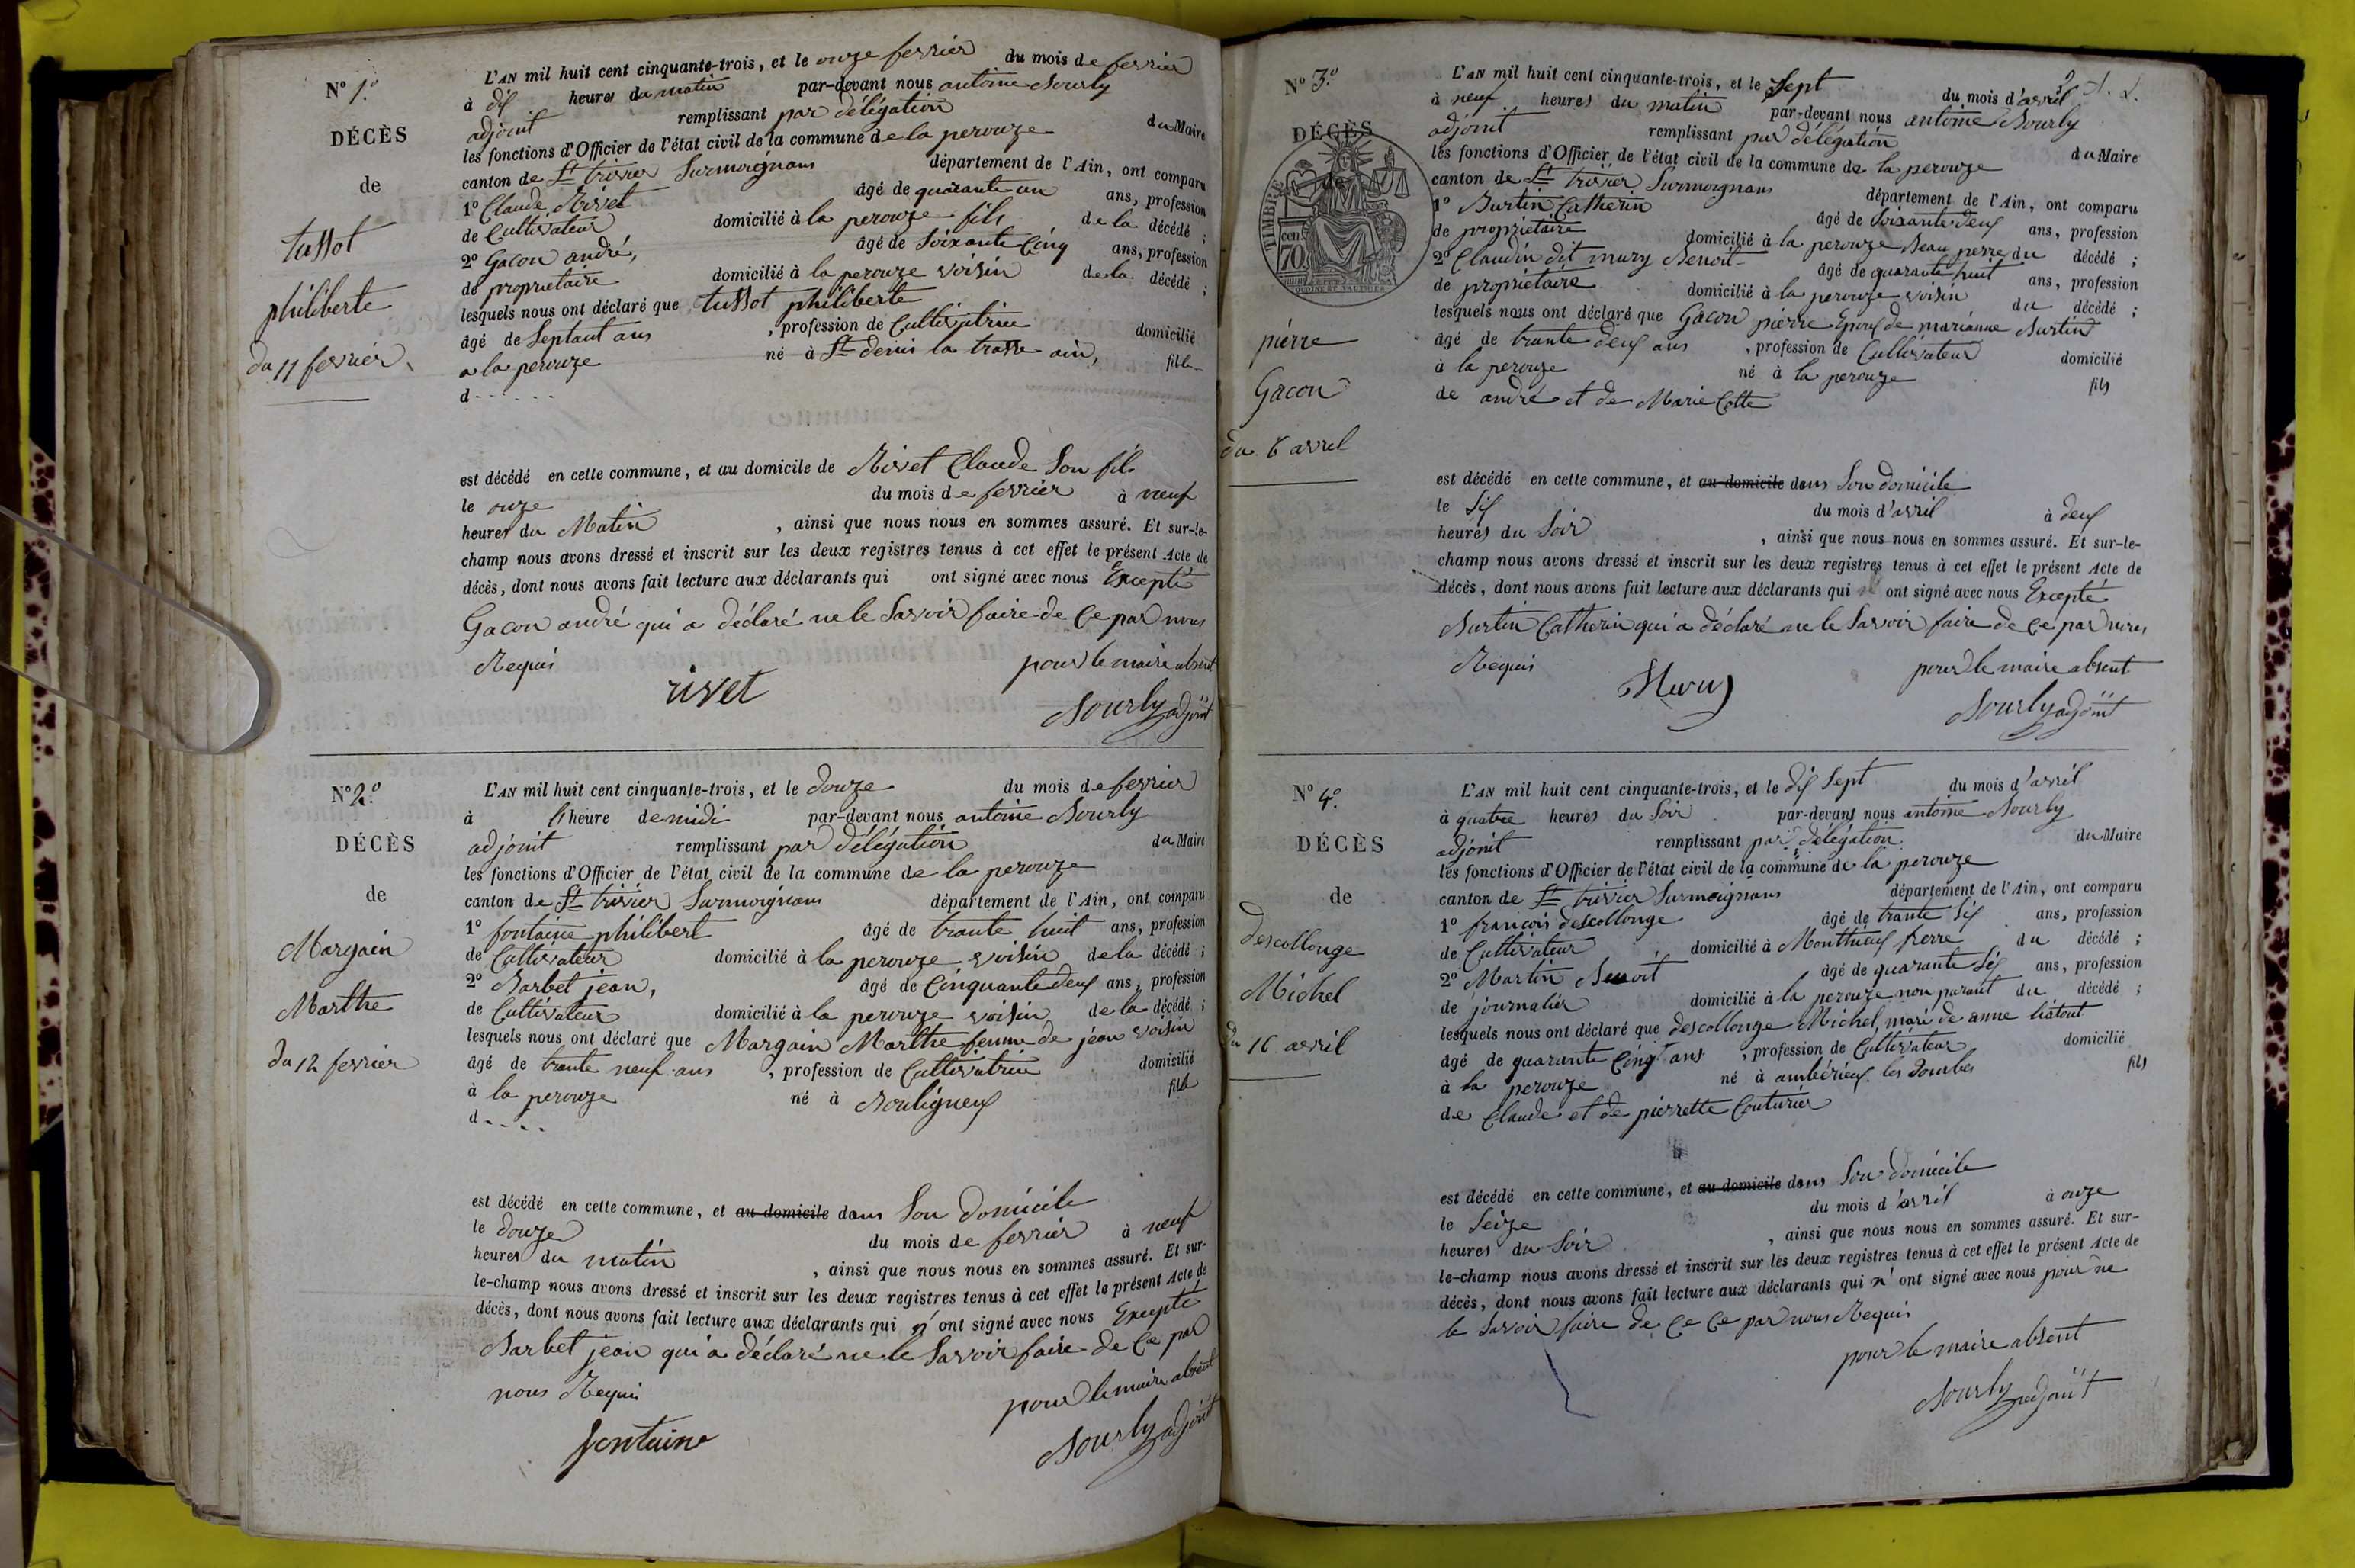 N° 1.°
DÉCÈS
de
tussot
philiberte
du 11 fevrier
L'AN mil huit cent cinquante-trois, et le onze fevrier du mois de fevrier
à dix heures du matin par-devant nous antoine Bourly
adjoint remplissant par délégation du Maire
les fonctions d'Officier de l'état civil de la commune de la perouze
canton de St trivier Surmoignans département de l'Ain, ont comparu
1° Claude Rivet âgé de quarante un ans, profession
de Cultivateur domicilié à la perouze fils de la décédé ;
2° Gacon andré, âgé de Soixante Cinq ans, profession
de propriétaire domicilié à la perouze voisin de la décédé ;
lesquels nous ont déclaré que tussot philiberte
âgé de Septant ans , profession de Cultivatrice domicilié
a la perouze né à St denis la trasse ain, fille
d......
est décédé en cette commune, et au domicile de Rivet Claude Son fils
le onze du mois de fevrier à neuf
heures du Matin , ainsi que nous nous en sommes assuré. Et sur-le-
champ nous avons dressé et inscrit sur les deux registres tenus à cet effet le présent Acte de
décès, dont nous avons fait lecture aux déclarants qui ont signé avec nous Excepté
Gacon andré qui a déclaré ne le Savoir faire de Ce par nous
Requis pour le maire absent
rivet
Bourly adjoint
N° 2.°
DÉCÈS
de
Margain
Marthe
du 12 fevrier
L'AN mil huit cent cinquante-trois, et le douze du mois de fevrier
à l'heure de midi par-devant nous antoine Bourly
adjoint remplissant par délégation du Maire
les fonctions d'Officier de l'état civil de la commune de la perouze
canton de St trivier Surmoignans département de l'Ain, ont comparu
1° fontaine philibert âgé de trante huit ans, profession
de Cultivateur domicilié à la perouze voisin de la décédé ;
2° Barbet jean, âgé de Cinquante deux ans, profession
de Cultivateur domicilié à la perouze voisin de la décédé ;
lesquels nous ont déclaré que Margain Marthe femme de jean voisin
âgé de trante neuf ans , profession de Cultivatrice domicilié
à la perouze né à Bouligneux fille
d....
est décédé en cette commune, et au domicile dans Son domicile
le douze du mois de fevrier à neuf
heures du matin , ainsi que nous nous en sommes assuré. Et sur-
le-champ nous avons dressé et inscrit sur les deux registres tenus à cet effet le présent Acte de
décès, dont nous avons fait lecture aux déclarants qui n'ont signé avec nous Excepté
Barbet jean qui a déclaré ne le Savoir faire de Ce par
nous Requis pour le maire absent
fontaine
Bourly adjoint
N° 3.°
DÉCÈS
de
TIMBRE
cen
70
pierre
Gacon
du 6 avril
L'AN mil huit cent cinquante-trois, et le Sept du mois d'avril
à neuf heures du matin par-devant nous antoine Bourly
adjoint remplissant par délégation du Maire
les fonctions d'Officier de l'état civil de la commune de la perouze
canton de St trivier Surmoignans département de l'Ain, ont comparu
1° Burtin Catherin âgé de Soixante deux ans, profession
de propriétaire domicilié à la perouze Beau perre du décédé ;
2° Claudin dit mury Benoit âgé de quarante huit ans, profession
de propriétaire domicilié à la perouze voisin du décédé ;
lesquels nous ont déclaré que Gacon pierre Epoux de marianne Burtin
âgé de trante deux ans , profession de Cultivateur domicilié
à la perouze né à la perouze fils
de andré et de Marie Cotte
est décédé en cette commune, et au domicile dans Son domicile
le Six du mois d'avril à deux
heures du Soir , ainsi que nous nous en sommes assuré. Et sur-le-
champ nous avons dressé et inscrit sur les deux registres tenus à cet effet le présent Acte de
décès, dont nous avons fait lecture aux déclarants qui ont signé avec nous Excepté
Burtin Catherin qui a déclaré ne le Savoir faire de Ce par nous
Requis pour le maire absent
Mury
Bourly adjoint
N° 4.°
DÉCÈS
de
descollonge
Michel
du 16 avril
L'AN mil huit cent cinquante-trois, et le dix Sept du mois d'avril
à quatre heures du Soir par-devant nous antoine Bourly
adjoint remplissant par délégation du Maire
les fonctions d'Officier de l'état civil de la commune de la perouze
canton de St trivier Surmoignans département de l'Ain, ont comparu
1° françois descollonge âgé de trante Six ans, profession
de Cultivateur domicilié à Monthieux frerre du décédé ;
2° Martin Benoit âgé de quarante Six ans, profession
de journalier domicilié à la perouze non parant du décédé ;
lesquels nous ont déclaré que descollonge Michel, mari de anne liatout
âgé de quarante Cinq ans , profession de Cultivateur domicilié
à la perouze né à ambérieux les dombes fils
de Claude et de pierrette Couturier
est décédé en cette commune, et au domicile dans Son domicile
le Seize du mois d'avril à onze
heures du Soir , ainsi que nous nous en sommes assuré. Et sur-
le-champ nous avons dressé et inscrit sur les deux registres tenus à cet effet le présent Acte de
décès, dont nous avons fait lecture aux déclarants qui n'ont signé avec nous pour ne
le Savoir faire de Ce Ce par nous Requis
pour le maire absent
Bourly adjoint